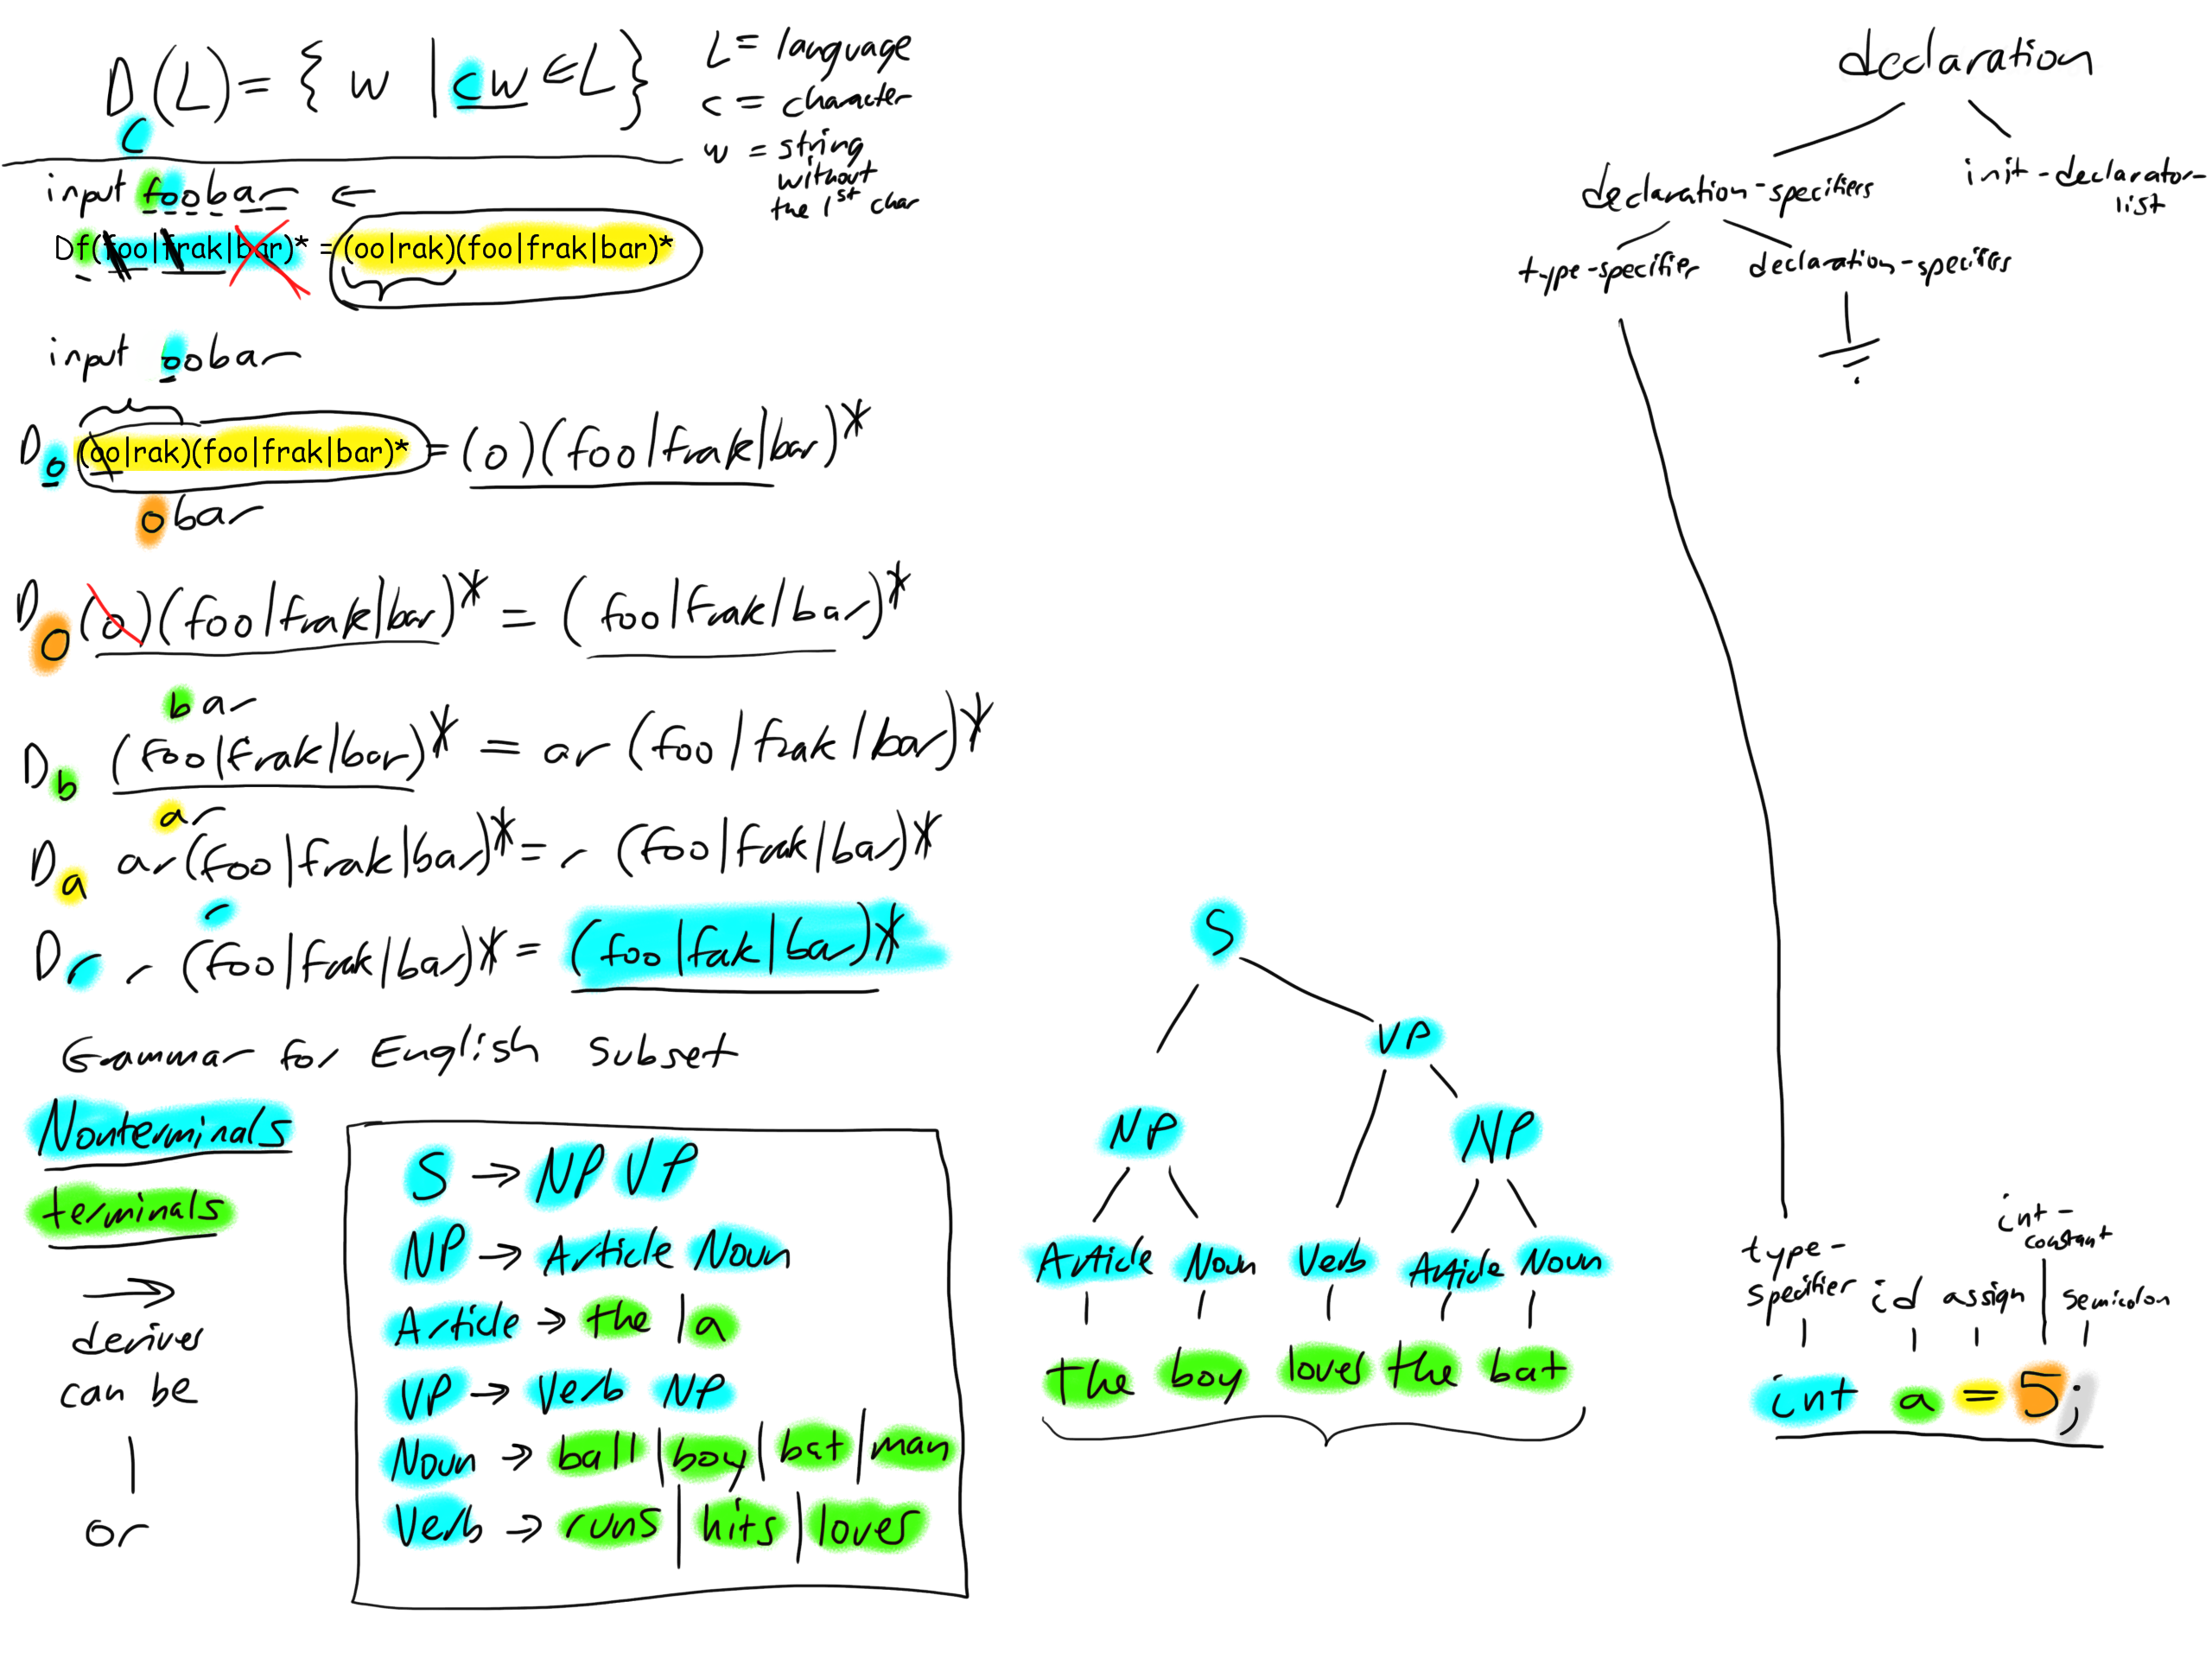 D_c(L) = { w | cw ∈ L }
L = language
c = character
w = string
without
the 1st char
input foobar ←
Df(foo|frak|bar)* = (oo|rak)(foo|frak|bar)*
input oobar
D_o (oo|rak)(foo|frak|bar)* = (o)(foo|frak|bar)*
obar
D_o (o)(foo|frak|bar)* = (foo|frak|bar)*
bar
D_b (foo|frak|bar)* = ar(foo|frak|bar)*
ar
D_a ar(foo|frak|bar)* = r (foo|frak|bar)*
r
D_r r (foo|frak|bar)* = (foo|fak|bar)*
Grammar for English Subset
Nonterminals
terminals
→
derives
can be
|
or
S → NP VP
NP → Article Noun
Article → the | a
VP → Verb NP
Noun → ball | boy | bat | man
Verb → runs | hits | loves
S
VP
NP NP
Article Noun Verb Article Noun
The boy loves the bat
declaration
declaration-specifiers
init-declarator-
list
type-specifier
declaration-specifiers
int-
constant
type-
specifier id assign semicolon
int a = 5;